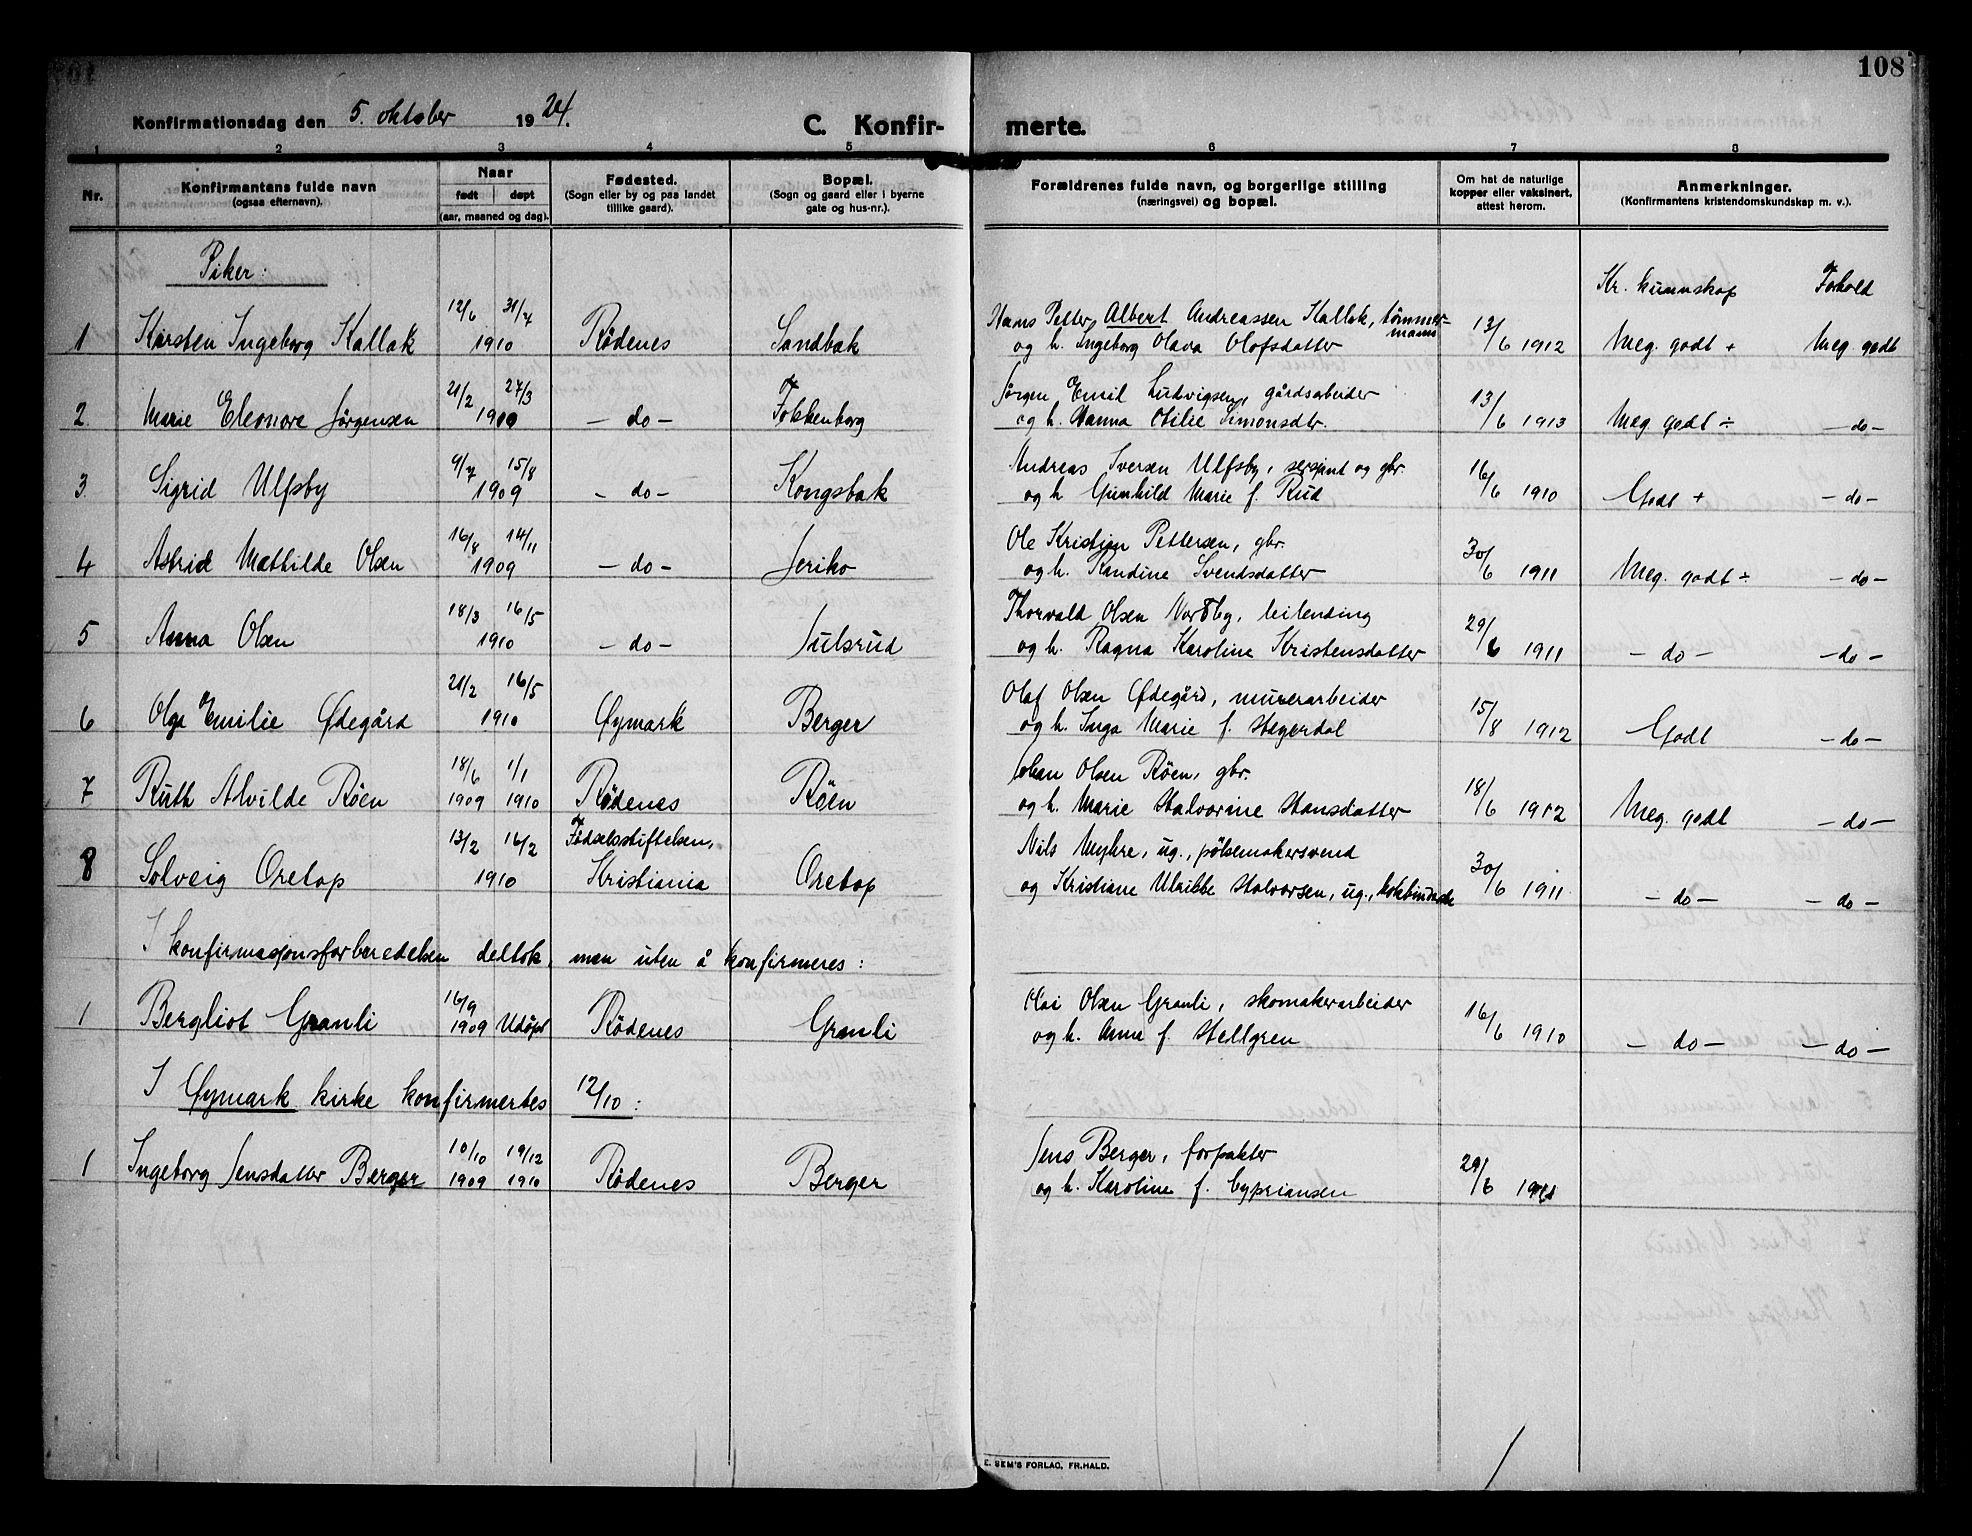 108
Konfirmationsdag den 5. oktober 1924.
C. Konfir- merte.
1 2 3 4 5 6 7 8
Nr.
Konfirmantens fulde navn
(ogsaa efternavn).
Naar
født døpt
(aar, maaned og dag).
Fødested.
(Sogn eller by og paa landet
tillike gaard).
Bopæl.
(Sogn og gaard eller i byerne
gate og hus-nr.).
Forældrenes fulde navn, og borgerlige stilling
(næringsvei) og bopæl.
Om hat de naturlige
kopper eller vaksinert,
attest herom.
Anmerkninger.
(Konfirmantens kristendomskundskap m. v.).
Piker:
Kr. kunnskap Forhold
12/6 31/7 Hans Petter Albert Andreassen Kallak, tømmer-
mann
1 Karsten Ingeborg Kallak 1910 Rødenes Sandbæk og h. Ingeborg Olava Olafsdatter 13/6 1912 Meg. godt + Meg. godt
21/2 27/3 Jørgen Emil Ludvigsen, gårdsarbeider
2. Marie Eleonore Jørgensen 1910 - do - Fokkenborg og h. Hanna Otilie Simonsdtr. 13/6 1913 Meg godt ÷ - do -
9/7 15/8 Andreas Iversen Ulfsby, sersjant og gbr.
3. Sigrid Ulfsby 1909 - do - Kongsbak og h Gunhild Marie f. Rud 16/6 1910 Godt + - do -
16/8 14/11 Ole Kristian Pettersen, gbr.
4 Astrid Mathilde Olsen 1909 - do - Jeriko og h. Kandine Svendsdatter 30/6 1911 Meg. godt ÷ - do -
18/3 16/5 Thorvald Olsen Nordby, leilending
5 Anna Olsen 1910 - do - Julsrud og h. Ragna Karoline Kristensdatter 29/6 1911 - do - - do -
21/2 16/5 Olaf Olsen Ødegård, murerarbeider
6 Olga Emilie Ødegård 1910 Øymark Berger og h. Inga Marie f. Hagerdal 15/8 1912 Godt - do -
18/6 1/1 Johan Olsen Röen, gbr.
7 Ruth Alvilde Röen 1909 1910 Rødenes Röen og h. Marie Halvorine Hansdatter 18/6 1912 Meg. godt - do -
13/2 16/2 Fødselsstiftelsen, Nils Myhre, ug., pølsemakersvend
8 Solveig Oretop 1910 Kristiania Oretop og Kristiane Ulrikke Halvorsen, ug., 30/6 1911 - do - - do -
I konfirmasjonsforberedelsen deltok, men uten å konfirmeres:
16/9 Olai Olsen Granli, skomakerarbeider
1 Bergliot Granli 1909 Udøpt Rödenes Granli og h. Anna f. Hellgren 16/6 1910 - do - - do -
I Øymark kirke konfirmertes 12/10:
10/10 19/12 Jens Berger, forpakter
1 Ingeborg Jensdatter Berger 1909 1910 Rødenes Berger og h. Karoline f. Cypriansen 29/6
E. SEM'S FORLAG, FR.HALD.